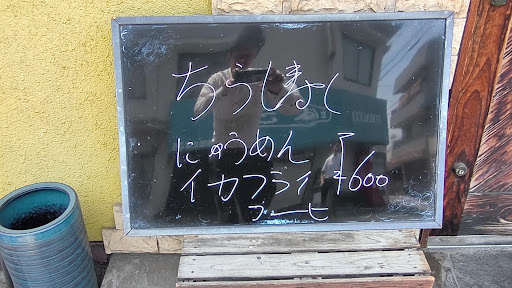 ちうしょく
にゅうめん
イカフライ ¥600
コーヒ